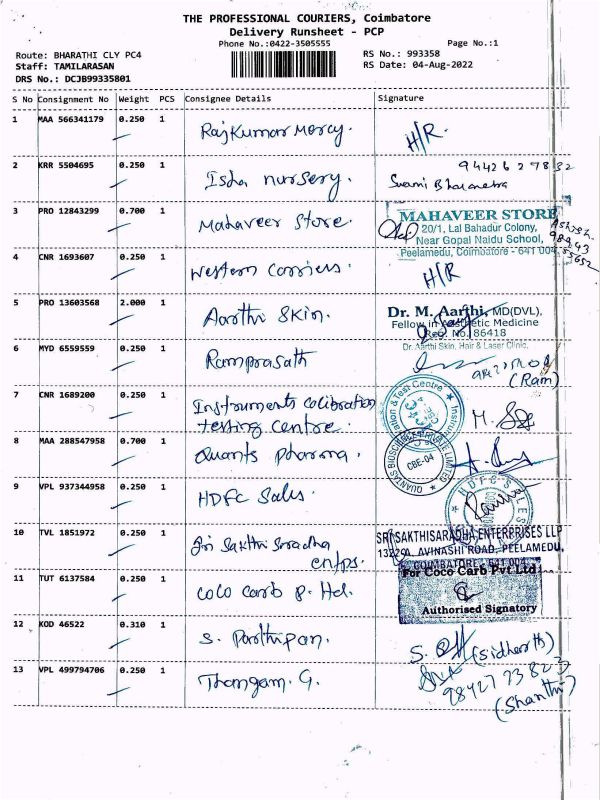 THE PROFESSIONAL COURIERS, Coimbatore
Delivery Runsheet - PCP
Phone No.:0422-3505555
Page No.:1
Route: BHARATHI CLY PC4
RS No.: 993358
Staff: TAMILARASAN
RS Date: 04-Aug-2022
DRS No.: DCJB99335801
S No Consignment No Weight PCS Consignee Details Signature
1 MAA 566341179 0.250 1 Rajkumar Mercy. H/R.
2 KRR 5504695 0.250 1 Isha nursery. 9442627832
Swami Bharanetra
3 PRO 12843299 0.700 1 Mahaveer Store.
MAHAVEER STORE
20/1, Lal Bahadur Colony,
Near Gopal Naidu School,
Peelamedu, Coimbatore - 641 004.
Ashish
4 CNR 1693607 0.250 1 Western Carriers. H/R
5 PRO 13603568 2.000 1 Aarthi Skin.
Dr. M. Aarthi, MD(DVL),
Fellow in Aesthetic Medicine
Reg. No. 86418
Dr. Aarthi Skin, Hair & Laser Clinic,
6 MYD 6559559 0.250 1 Ramprasath
(Ram)
7 CNR 1689200 0.250 1 Instruments Calibration
testing Centre.
8 MAA 288547958 0.700 1 Quants pharma.
CBE-04
9 VPL 937344958 0.250 1 HDFC Sales.
HDFC SALES
10 TVL 1851972 0.250 1 Sri Sakthi Saradha
entps.
SRI SAKTHISARADHA ENTERPRISES LLP
AVINASHI ROAD, PEELAMEDU,
COIMBATORE - 641 004
11 TUT 6137584 0.250 1 Coco Carb P. Ltd.
For Coco Carb Pvt Ltd
Authorised Signatory
12 KOD 46522 0.310 1 S. Parthipan.
(Sidharth)
13 VPL 499794706 0.250 1 Thangam. G.
9842773823
(Shanthi)